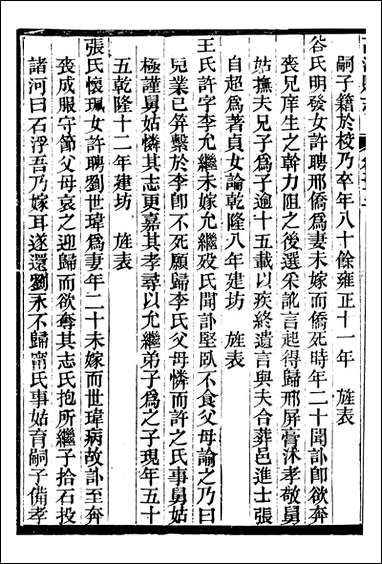 嗣子籍於校乃卒年八十餘雍正十一年　旌表
谷氏明發女許聘邢僑爲妻未嫁而僑死時年二十聞訃卽欲奔
喪兄庠生之幹力阻之後選采訛言起得歸邢屏膏沐孝敬舅
姑撫夫兄子爲子逾十五載以疾終遺言與夫合葬邑進士張
自超爲著貞女論乾隆八年建坊　旌表
王氏許字李允繼未嫁允繼歿氏聞訃堅臥不食父母諭之乃曰
兒業已筓繫於李卽不死願歸李氏父母憐而許之氏事舅姑
極謹舅姑憐其志更嘉其孝尋以允繼弟子爲之子現年五十
五乾隆十二年建坊　旌表
張氏懷珮女許聘劉世瑋爲妻年二十未嫁而世瑋病故訃至奔
喪成服守節父母哀之迎歸而欲奪其志氏抱所繼子拾石投
諸河曰石浮吾乃嫁耳遂還劉永不歸甯氏事姑育嗣子備孝